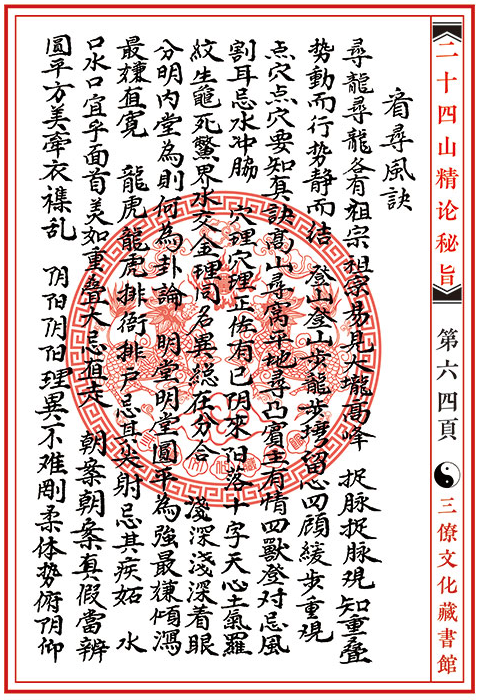 二十四山精论秘旨
第六四頁
三僚文化藏書館
看尋風訣
尋龍尋龍各有祖宗祖宗易見大壠高峰 捉脉捉脉覌知重叠
势動而行势静而结 登山登山步龍步塆留心四顧緩步重覌
点穴点穴要知真訣高山尋窩平地尋凸賓主有情四獸登对忌風
割耳忌水冲脇 穴理穴理正佐有已阴來阳落十字天心土氣羅
紋生龜死鱉界水交金理同名異総在分合 淺深淺深着眼
分明内堂為則何為卦論 明堂明堂圓平為強最嫌傾瀉
最嫌直寬 龍虎龍虎排衙排户忌其尖射忌其疾妬 水
口水口宜乎面首美如重叠大忌直走 朝案朝案真假當辨
圆平方美牽衣襍乱 阴阳阴阳理異不难剛柔体势俯阴仰